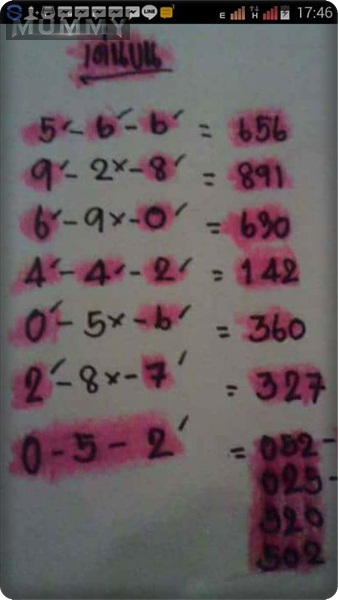 MUMMY
E H 17:46
เด่นบน
5✓-6✓-6✓ = 656
9✓-2×-8✓ = 891
6✓-9×-0✓ = 630
4✓-4✓-2✓ = 142
0✓-5×-6✓ = 360
2✓-8×-7✓ = 327
0-5-2✓ = 052-
025-
520
502